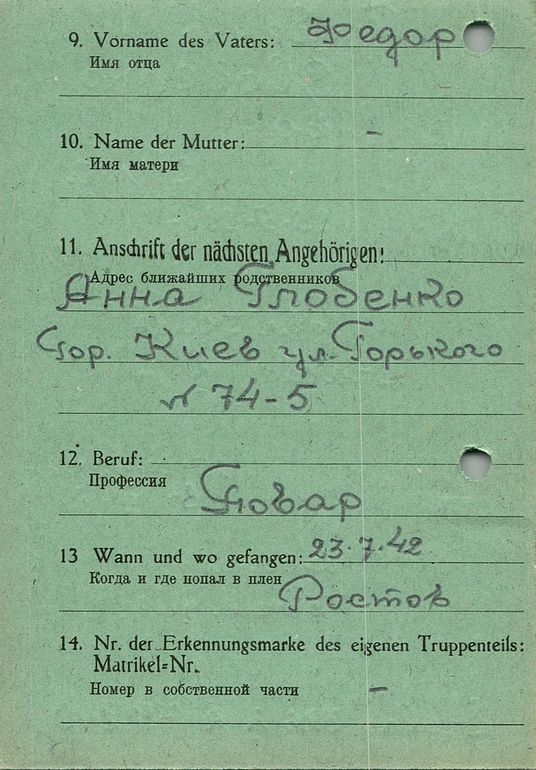 9. Vorname des Vaters: Федор
Имя отца
10. Name der Mutter: –
Имя матери
11. Anschrift der nächsten Angehörigen:
Адрес ближайших родственников
Анна Глобенко
Гор. Киев ул. Горького
№ 74-5
12. Beruf:
Профессия
Повар
13 Wann und wo gefangen: 23.7.42
Когда и где попал в плен
Ростов
14. Nr. der Erkennungsmarke des eigenen Truppenteils:
Matrikel=Nr.
Номер в собственной части –